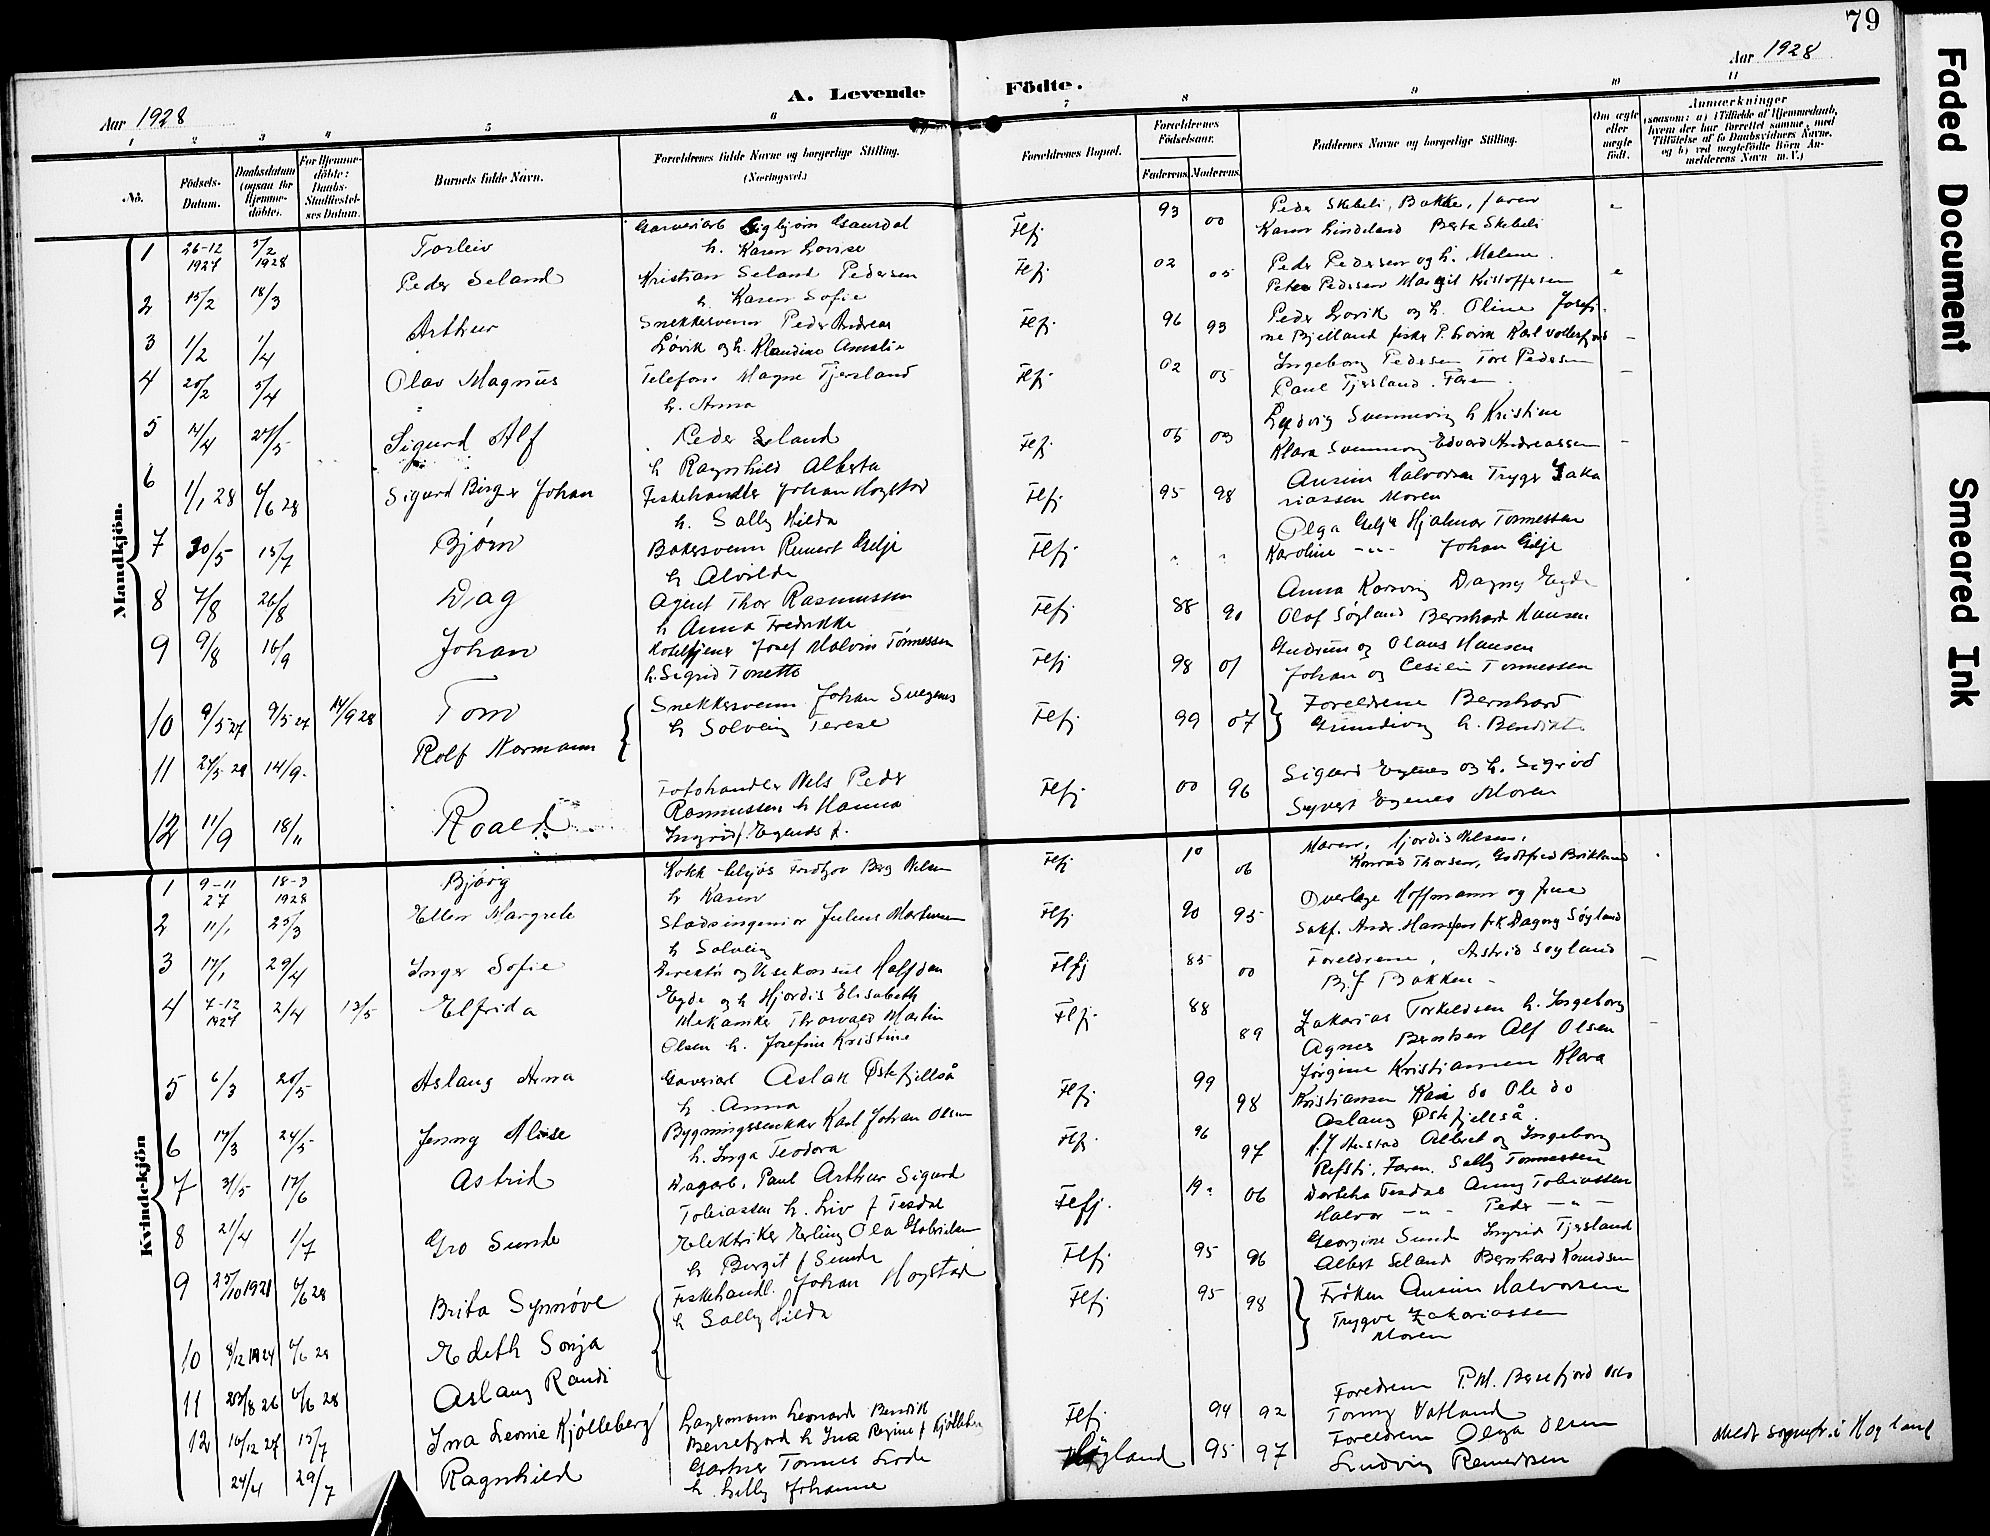 79
Aar 1928
A. Levende Födte.
Aar 1928
1 2 3 4 5 6 7 8 9 10 11
No.
Födsels-Datum.
Daabsdatum (ogsaa for Hjemme-döbte).
For Hjemme-döbte: Daabs-Stadfæstel-ses Datum.
Barnets fulde Navn.
Forældrenes fulde Navne og borgerlige Stilling. (Næringsvei.)
Forældrenes Bopæl.
Forældrenes Födselsaar.
Faderens. Moderens.
Faddernes Navne og borgerlige Stilling.
Om ægte eller uægte födt.
Anmærkninger
(saasom: a) i Tilfælde af Hjemmedaab, hvem der har forrettet samme, med Tilföielse af to Daabsvidners Navne, og b) ved uægtefödte Börn An-melderens Navn m. V.)
Mandkjön.
1 26-12 1927 5/2 1928 Torleiv
h. Karen Lovise Flfj. 93 00
Peder Skeheli, Bakke, faren
Karen Lindeland Berta Skeheli
2 15/2 18/3 Peder Seland
Kristian Seland Pedersen
h. Karen Sofie Flfj. 02 05
Peder Pedersen og h. Malene
Peter Pedersen Margit Kristoffersen
3 1/2 1/4 Arthur
Snekkersvenn Peder Andreas
Lövik og h. Klaudine Amalie Flfj. 96 93
Peder Lovik og h. Oline Josefi-
ne Bjelland fisker P. Lovik Karl
4 20/2 5/4 Olav Magnus
Telefon Magne Tjersland
h. Anna Flfj. 02 05
Ingeborg Pedersen Tore Pedersen
Paul Tjersland. Faren
5 14/4 27/5 Sigurd Alf
Peder Eeland
h Ragnhild Alberta Flfj. 05 03
Ludvig Svennevig h Kristine
Klara Svennevig Edvard Andreassen
6 1/1 28 6/6 28 Sigurd Birger Johan
Fiskehandler Johan Hogstad
h. Sally Hilda Flfj. 95 98
Ausein Halvorsen Trygve Zaka
riassen Moren
7 30/5 15/7 Björn
Bakersvenn Reinert Gilje
h Alvilda Flfj.
Olga Gilje Hjalmar Tonnessen
Karoline -"- Johan Gilje
8 7/8 26/8 Dag
Agent Thor Rasmussen
h Anna Fredrikke Flfj. 88 90
Anna Korsvig Dagny Egde
Olaf Söyland Bernhard Hansen
9 9/8 16/9 Johan
Josef Malvin Tönnessen
h. Sigrid Tonette Flfj. 98 01
Gudrun og Olaus Hansen
Johan og Cesilie Tonnessen
10 9/5 27 9/5 27 14/9 28 Tom
Snekkersvenn Johan
h Solveig Terese Flfj. 99 07
Foreldrene Bernhard
h. Bendikte
11 14/9 Rolf Normann
12 11/9 18/11 Roald
Fotohandler Nels Peder
Rasmussen h Hanna
Ingrid f. Egenes Flfj. 00 96
Sigurd Egenes og h. Sigrid
Syvert Egenes Moren
Kvindekjön
1 9-11 27 18-3 1928 Björg
Kokk Fredtjov Berg Nilsen
h Karen Flfj 10 06
Moren, Hjordis Nilsen,
Konrad Thorsen, Godtfred Birkland
2 11/1 25/3 Ellen Margrete
Stadsingeniør Julius Mortensen
h Solveig Flfj 90 95
Overlæge Hoffmann og frue
Sakf. Andr. Hansson frk Dagny Söyland
3 17/1 29/4 Inger Sofie
Direktör og Visekonsul Halfdan
Egde og h Hjordis Elisabeth Flfj 85 00
Foreldrene, Astrid Soyland
B. J Bakken
4 7-12 1927 2/4 13/5 Elfrida
Mekaniker Thorvald Martin
Olsen h. Josefine Kristine Flfj. 88 89
Zakarias Torkeldsen h. Ingeborg
Agnes Berntsen Alf Olsen
5 6/3 20/5 Aslaug Anna
Garveriarb Aslak Østefjellså
h. Anna Flfj. 99 98
Jörgine Kristiansen Klara
Kristiansen Kaia do Ole do
Aslaug Østefjellså.
6 17/3 24/5 Jenny Alise
Bygningssnekker Karl Johan Olsen
h. Inga Teodora Flfj. 96 97
Albert og Ingeborg
Refsti, Faren. Sally Tonnessen
7 31/5 17/6 Astrid
Dagarb. Paul Arthur Sigurd
Tobiassen h. Liv f Tesdal Flefj. 06
Dorthea Tesdal Anny Tobiassen
Halvor -"- Peder -"-
8 21/4 1/7 Gro Sunde
Elektriker Erling Ola Gabrielsen
h Birgit f Sunde Flfj. 95 96
Georgine Sunde Ingrid Tjersland
Albert Seland Bernhard Knudsen
9 25/10 1921 6/6 28 Brita Synnöve
Fiskehandl. Johan Hogstad
h Sally Hilda Flfj 95 98
Fröken Ausein Halvorsen
Trygve Zakariassen
Moren
10 8/12 1924 6/6 28 Edith Sonja
11 23/8 26 6/6 28 Aslaug Randi
12 10/12 27 15/7 Ina Leonie Kjölleberg
Lagermann Leonard Bendik
Bersefjord h Ina Regine f Kjölleberg Flfj 94 92
Foreldrene P. M. Bersefjord Oslo
Tonny Vatland
24/4 29/7 Ragnhild
Gartner Tonnes Lode
h. Lilly Johanne Högland 95 97
Foreldrene Olga Olsen
Ludvig Reinertsen
i Hogland
Faded Document
Smeared Ink